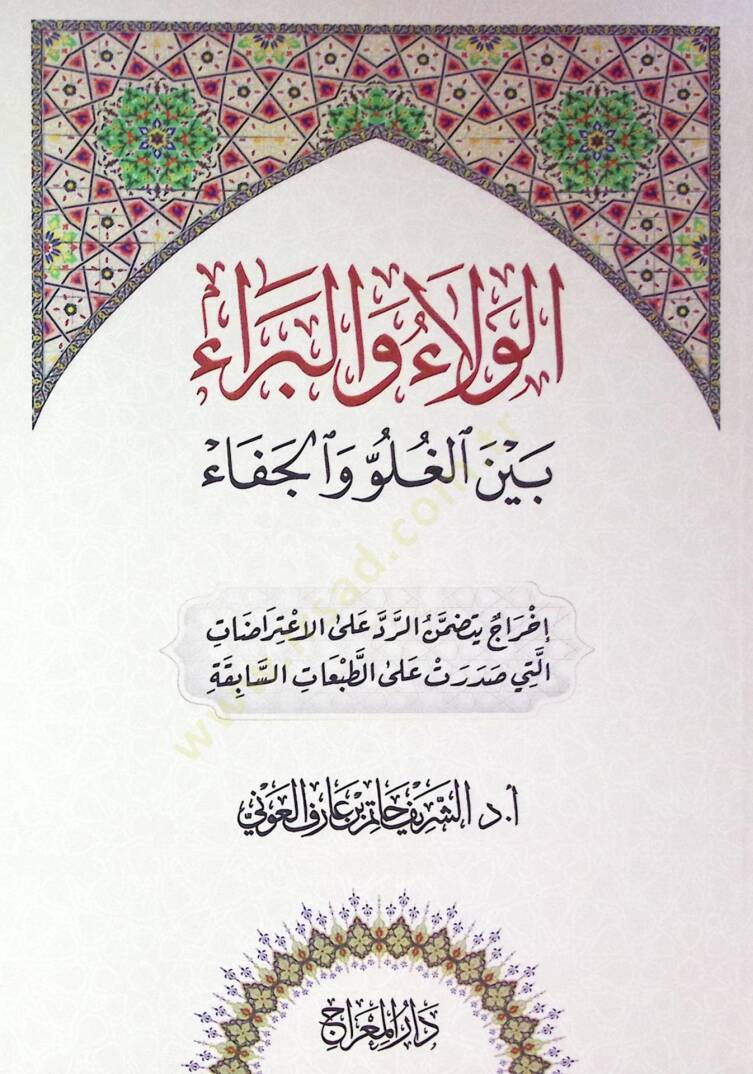 الوَلَاءُ وَالبَرَاءُ
بَيْنَ ٱلغُلُوِّ وَٱلجَفَاءْ
إِخْرَاجٌ يتضمَّنُ الرَّدَّ عَلَى الاعْتِرَاضَاتِ
الَّتِي صَدَرَتْ عَلَى الطَّبْعَاتِ السَّابِقَةِ
أ.د الشَّرِيف حَاتِم بْن عَارِف العَوْنِي
دَارُ المِعْرَاجِ